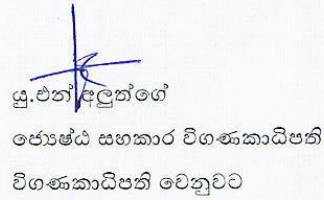 යු.එන් අලුත්ගේ
ජ්‍යෙෂ්ඨ සහකාර විගණකාධිපති
විගණකාධිපති වෙනුවට